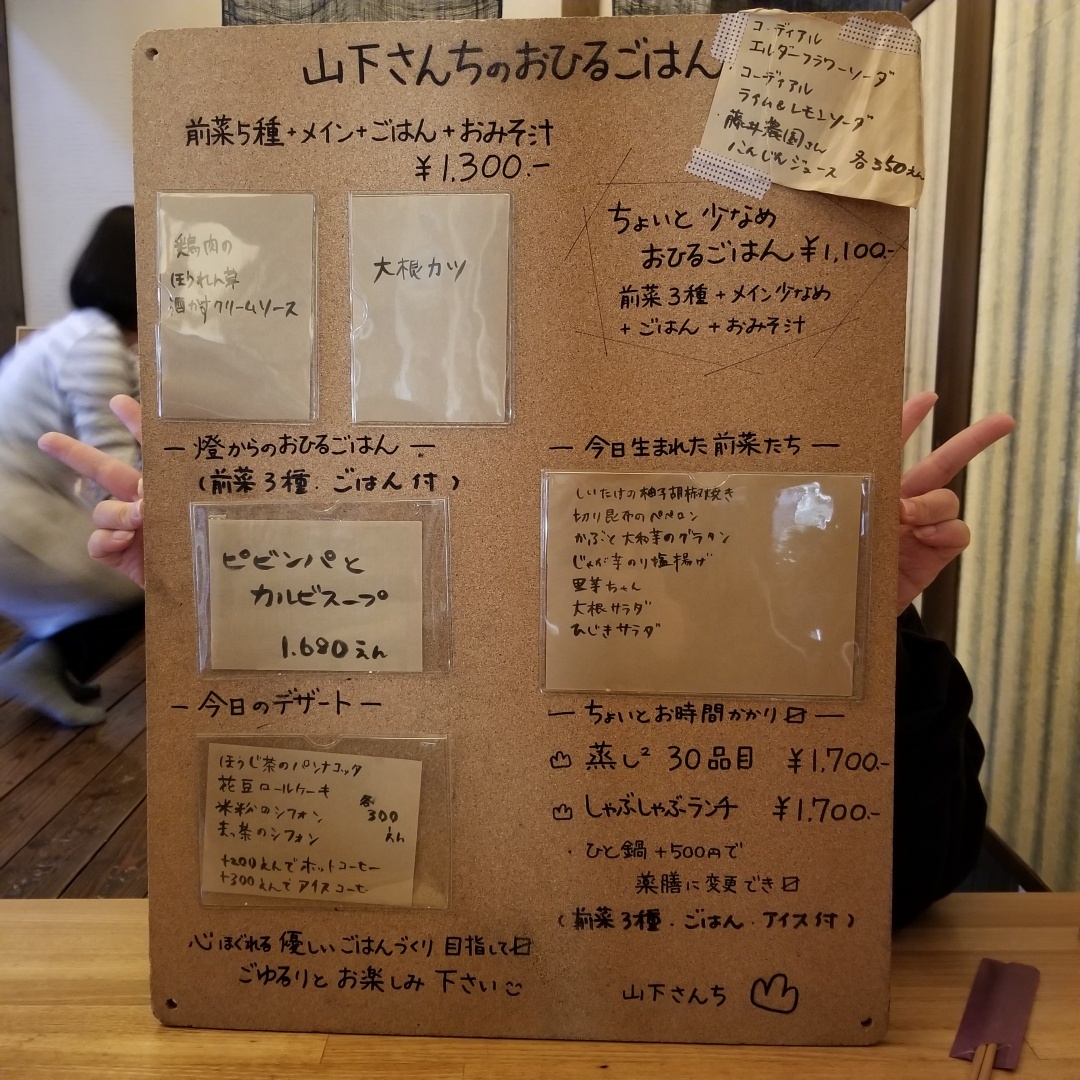 山下さんちのおひるごはん
コーディアル
エルダーフラワーソーダ
コーディアル
ライム&レモンソーダ
藤井農園さん
にんじんジュース 各350えん
前菜5種+メイン+ごはん+おみそ汁
¥1,300.-
鶏肉の
ほうれん草
酒かすクリームソース
大根カツ
ちょいと少なめ
おひるごはん ¥1,100.-
前菜3種+メイン少なめ
+ごはん+おみそ汁
— 燈からのおひるごはん —
(前菜3種.ごはん付)
ピビンパと
カルビスープ
1.680えん
— 今日生まれた前菜たち —
しいたけの柚子胡椒焼き
切り昆布のペペロン
かぶと大和芋のグラタン
じゃが芋のり塩揚げ
里芋ちゃん
大根サラダ
ひじきサラダ
— 今日のデザート —
ほうじ茶のパンナコッタ
花豆ロールケーキ
米粉のシフォン
まっ茶のシフォン
各300えん
+200えんでホットコーヒー
+300えんでアイスコーヒー
— ちょいとお時間かかり〼 —
蒸し² 30品目 ¥1,700.-
しゃぶしゃぶランチ ¥1,700.-
・ひと鍋+500円で
薬膳に変更でき〼
(前菜3種.ごはん.アイス付)
心ほぐれる優しいごはんづくり目指して〼
ごゆるりとお楽しみ下さい
山下さんち